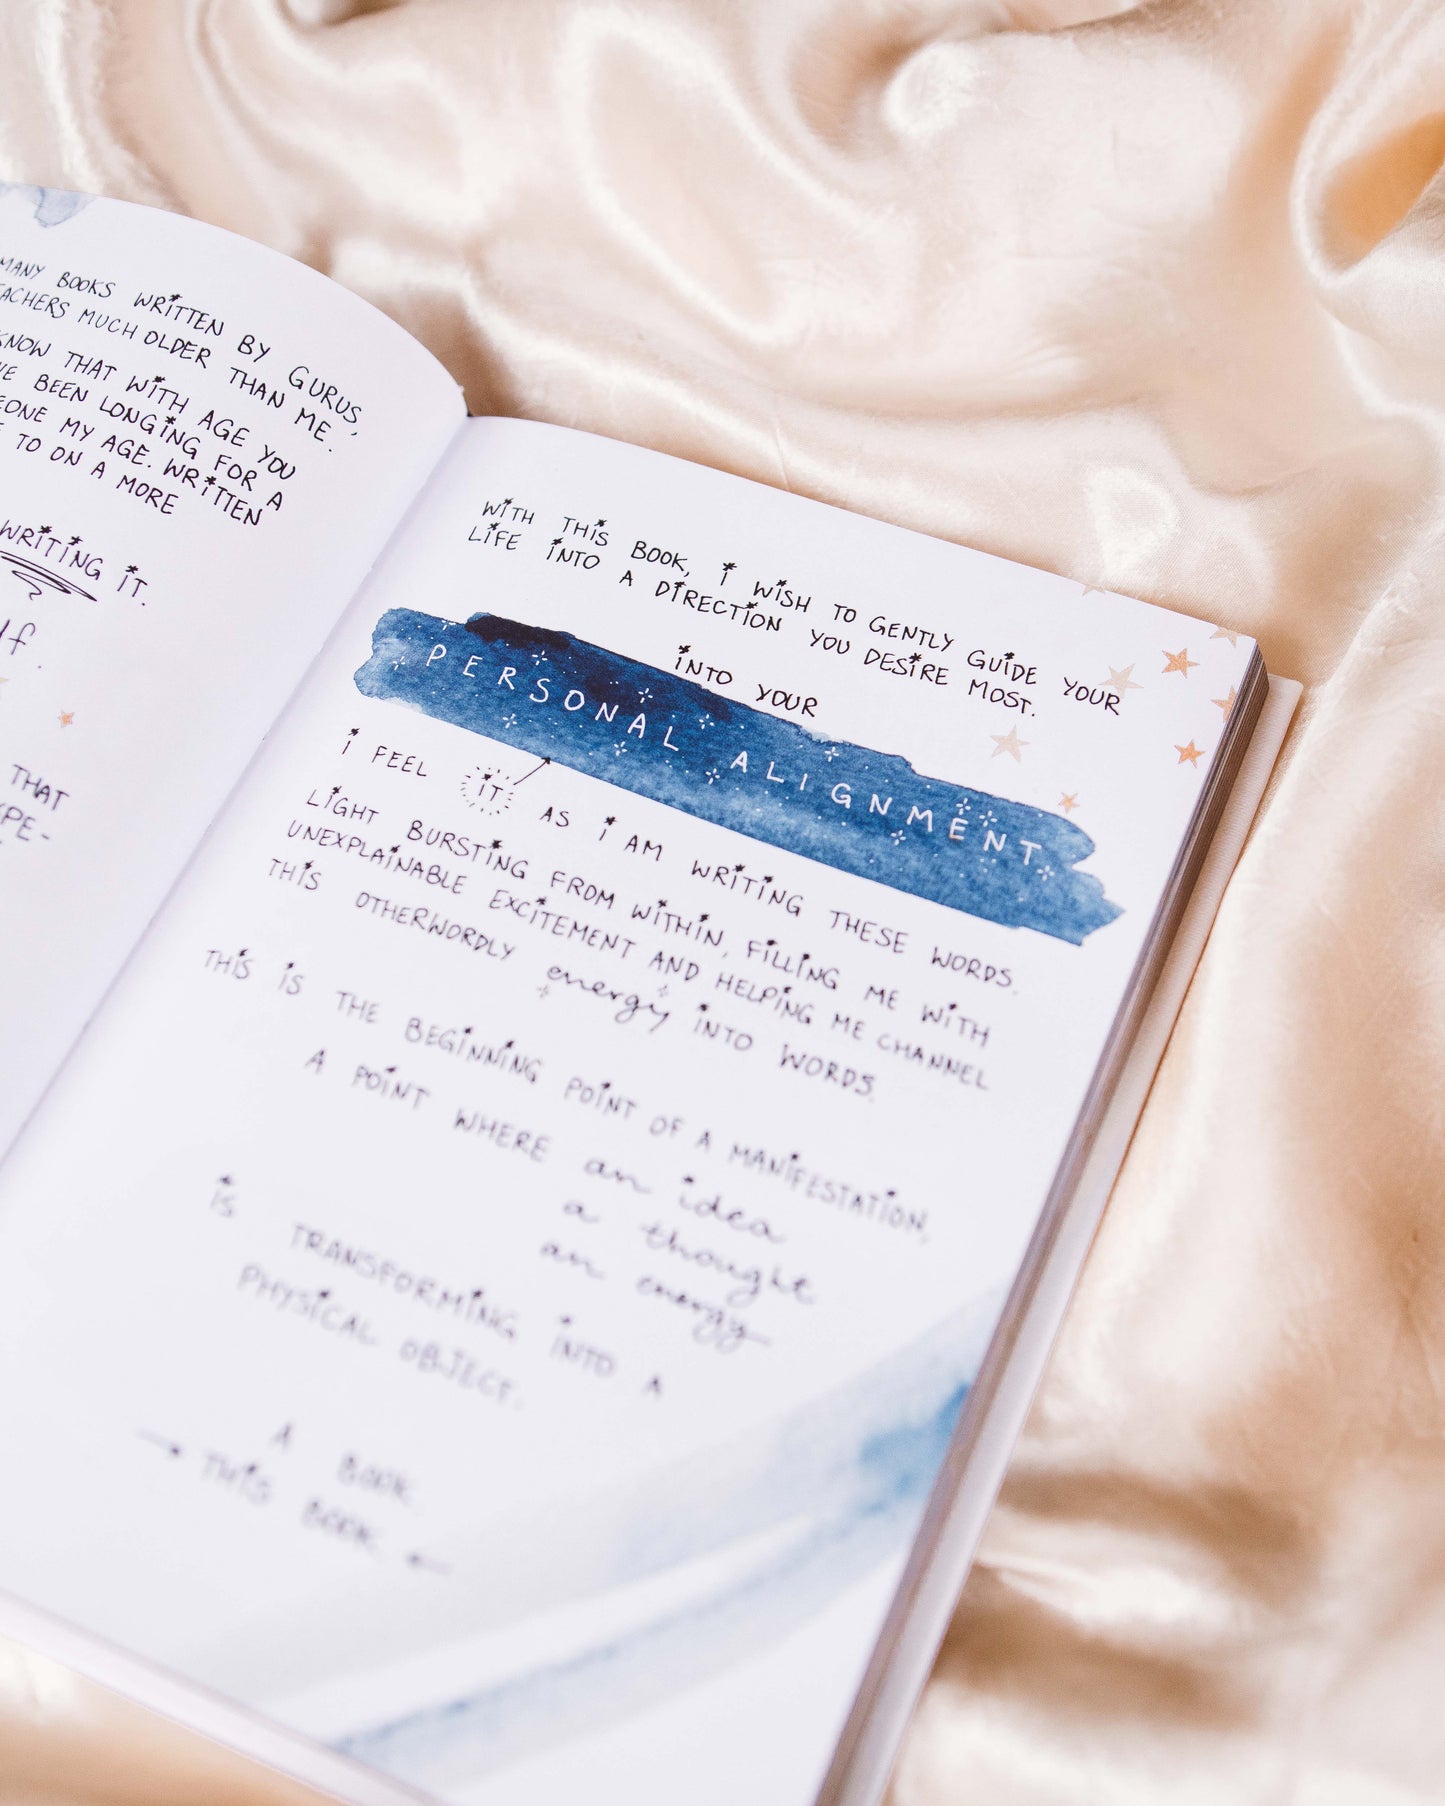 MANY BOOKS WRITTEN BY GURUS,
MUCH OLDER THAN ME.
KNOW THAT WITH AGE YOU
BEEN LONGING FOR A
MY AGE. WRITTEN
TO ON A MORE
WRITING IT.
THAT
WITH THIS BOOK, I WISH TO GENTLY GUIDE YOUR
LIFE INTO A DIRECTION YOU DESIRE MOST.
INTO YOUR
PERSONAL ALIGNMENT
I FEEL IT AS I AM WRITING THESE WORDS.
LIGHT BURSTING FROM WITHIN, FILLING ME WITH
UNEXPLAINABLE EXCITEMENT AND HELPING ME CHANNEL
THIS OTHERWORDLY energy INTO WORDS.
THIS IS THE BEGINNING POINT OF A MANIFESTATION,
A POINT WHERE an idea
a thought
an energy
IS TRANSFORMING INTO A
PHYSICAL OBJECT.
A BOOK
THIS BOOK